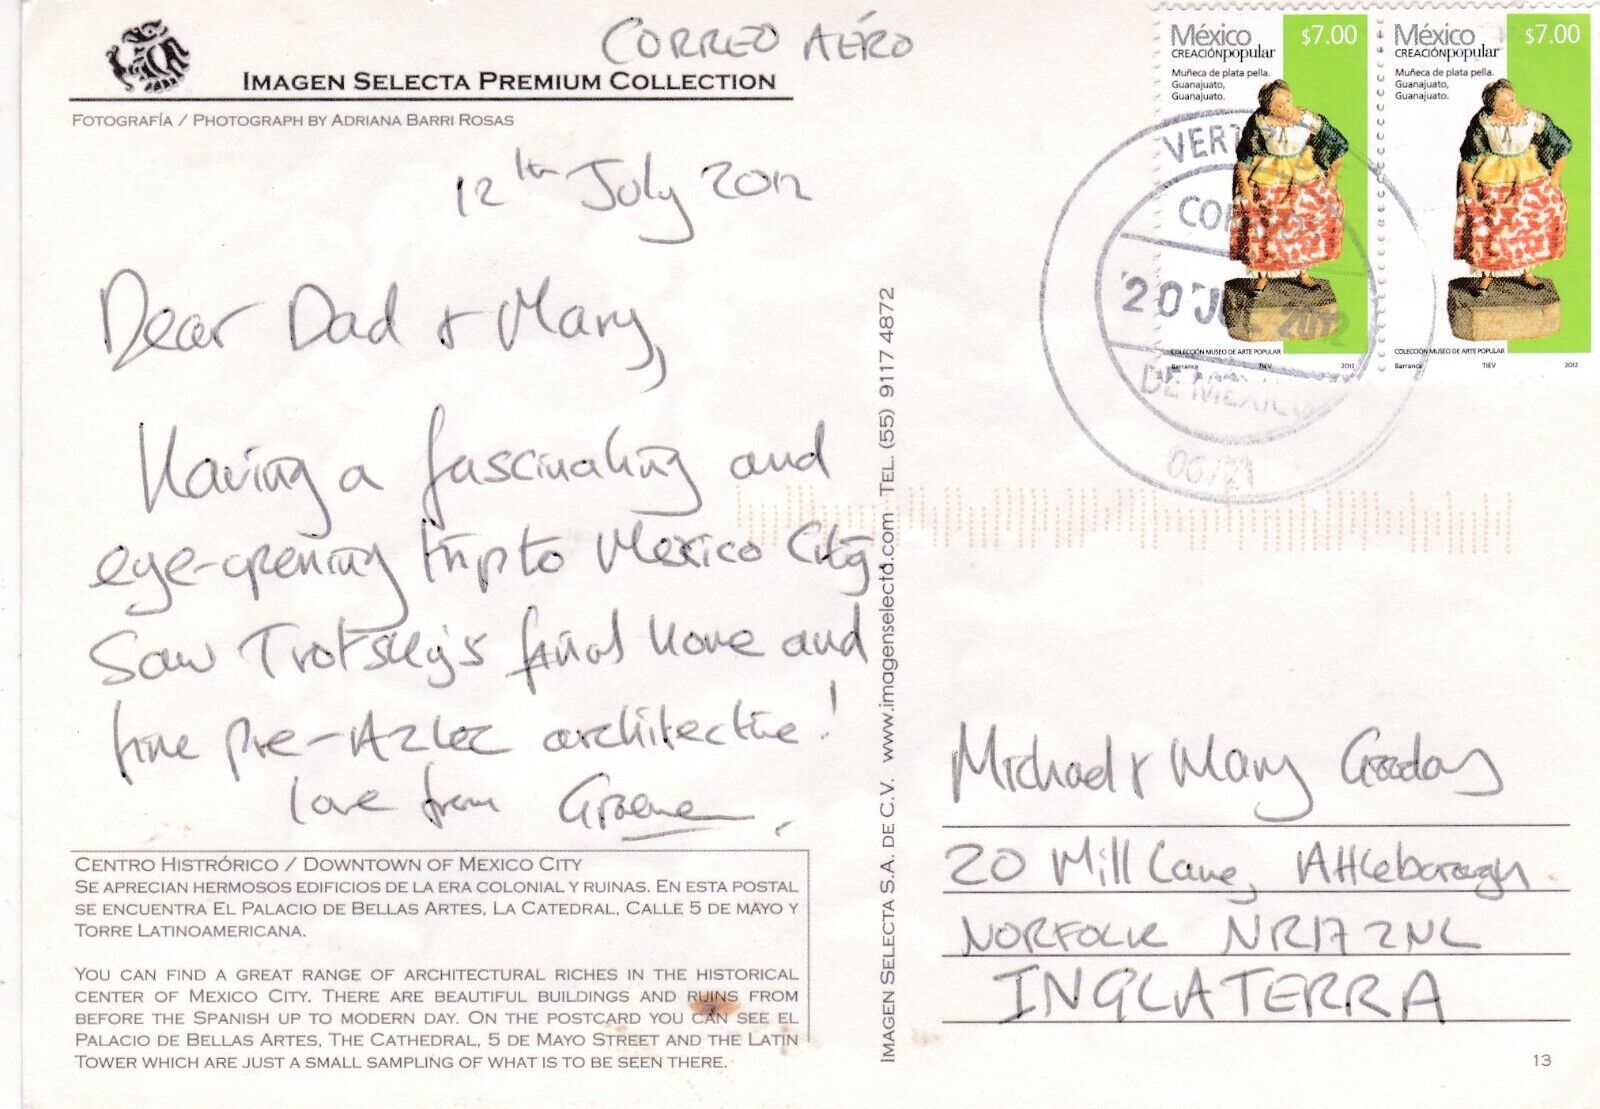 CORREO AÉRO
IMAGEN SELECTA PREMIUM COLLECTION
FOTOGRAFÍA / PHOTOGRAPH BY ADRIANA BARRI ROSAS
12th July 2012
Dear Dad & Mary,
Having a fascinating and
eye-opening trip to Mexico City.
Saw Trotsky's final home and
fine pre-Aztec architecture!
love from Graeme.
CENTRO HISTRÓRICO / DOWNTOWN OF MEXICO CITY
SE APRECIAN HERMOSOS EDIFICIOS DE LA ERA COLONIAL Y RUINAS. EN ESTA POSTAL
SE ENCUENTRA EL PALACIO DE BELLAS ARTES, LA CATEDRAL, CALLE 5 DE MAYO Y
TORRE LATINOAMERICANA.
YOU CAN FIND A GREAT RANGE OF ARCHITECTURAL RICHES IN THE HISTORICAL
CENTER OF MEXICO CITY. THERE ARE BEAUTIFUL BUILDINGS AND RUINS FROM
BEFORE THE SPANISH UP TO MODERN DAY. ON THE POSTCARD YOU CAN SEE EL
PALACIO DE BELLAS ARTES, THE CATHEDRAL, 5 DE MAYO STREET AND THE LATIN
TOWER WHICH ARE JUST A SMALL SAMPLING OF WHAT IS TO BE SEEN THERE.
IMAGEN SELECTA S.A. DE C.V. www.imagenselecta.com TEL. (55) 9117 4872
México $7.00
CREACIÓN popular
Muñeca de plata pella.
Guanajuato,
Guanajuato.
COLECCIÓN MUSEO DE ARTE POPULAR
Barranca TIEV 2012
México $7.00
CREACIÓN popular
Muñeca de plata pella.
Guanajuato,
Guanajuato.
COLECCIÓN MUSEO DE ARTE POPULAR
Barranca TIEV 2012
20 JUL 2012
DE MEXICO
06721
Michael & Mary Gooday
20 Mill Lane, Attleborough
NORFOLK NR17 2NL
INGLATERRA
13